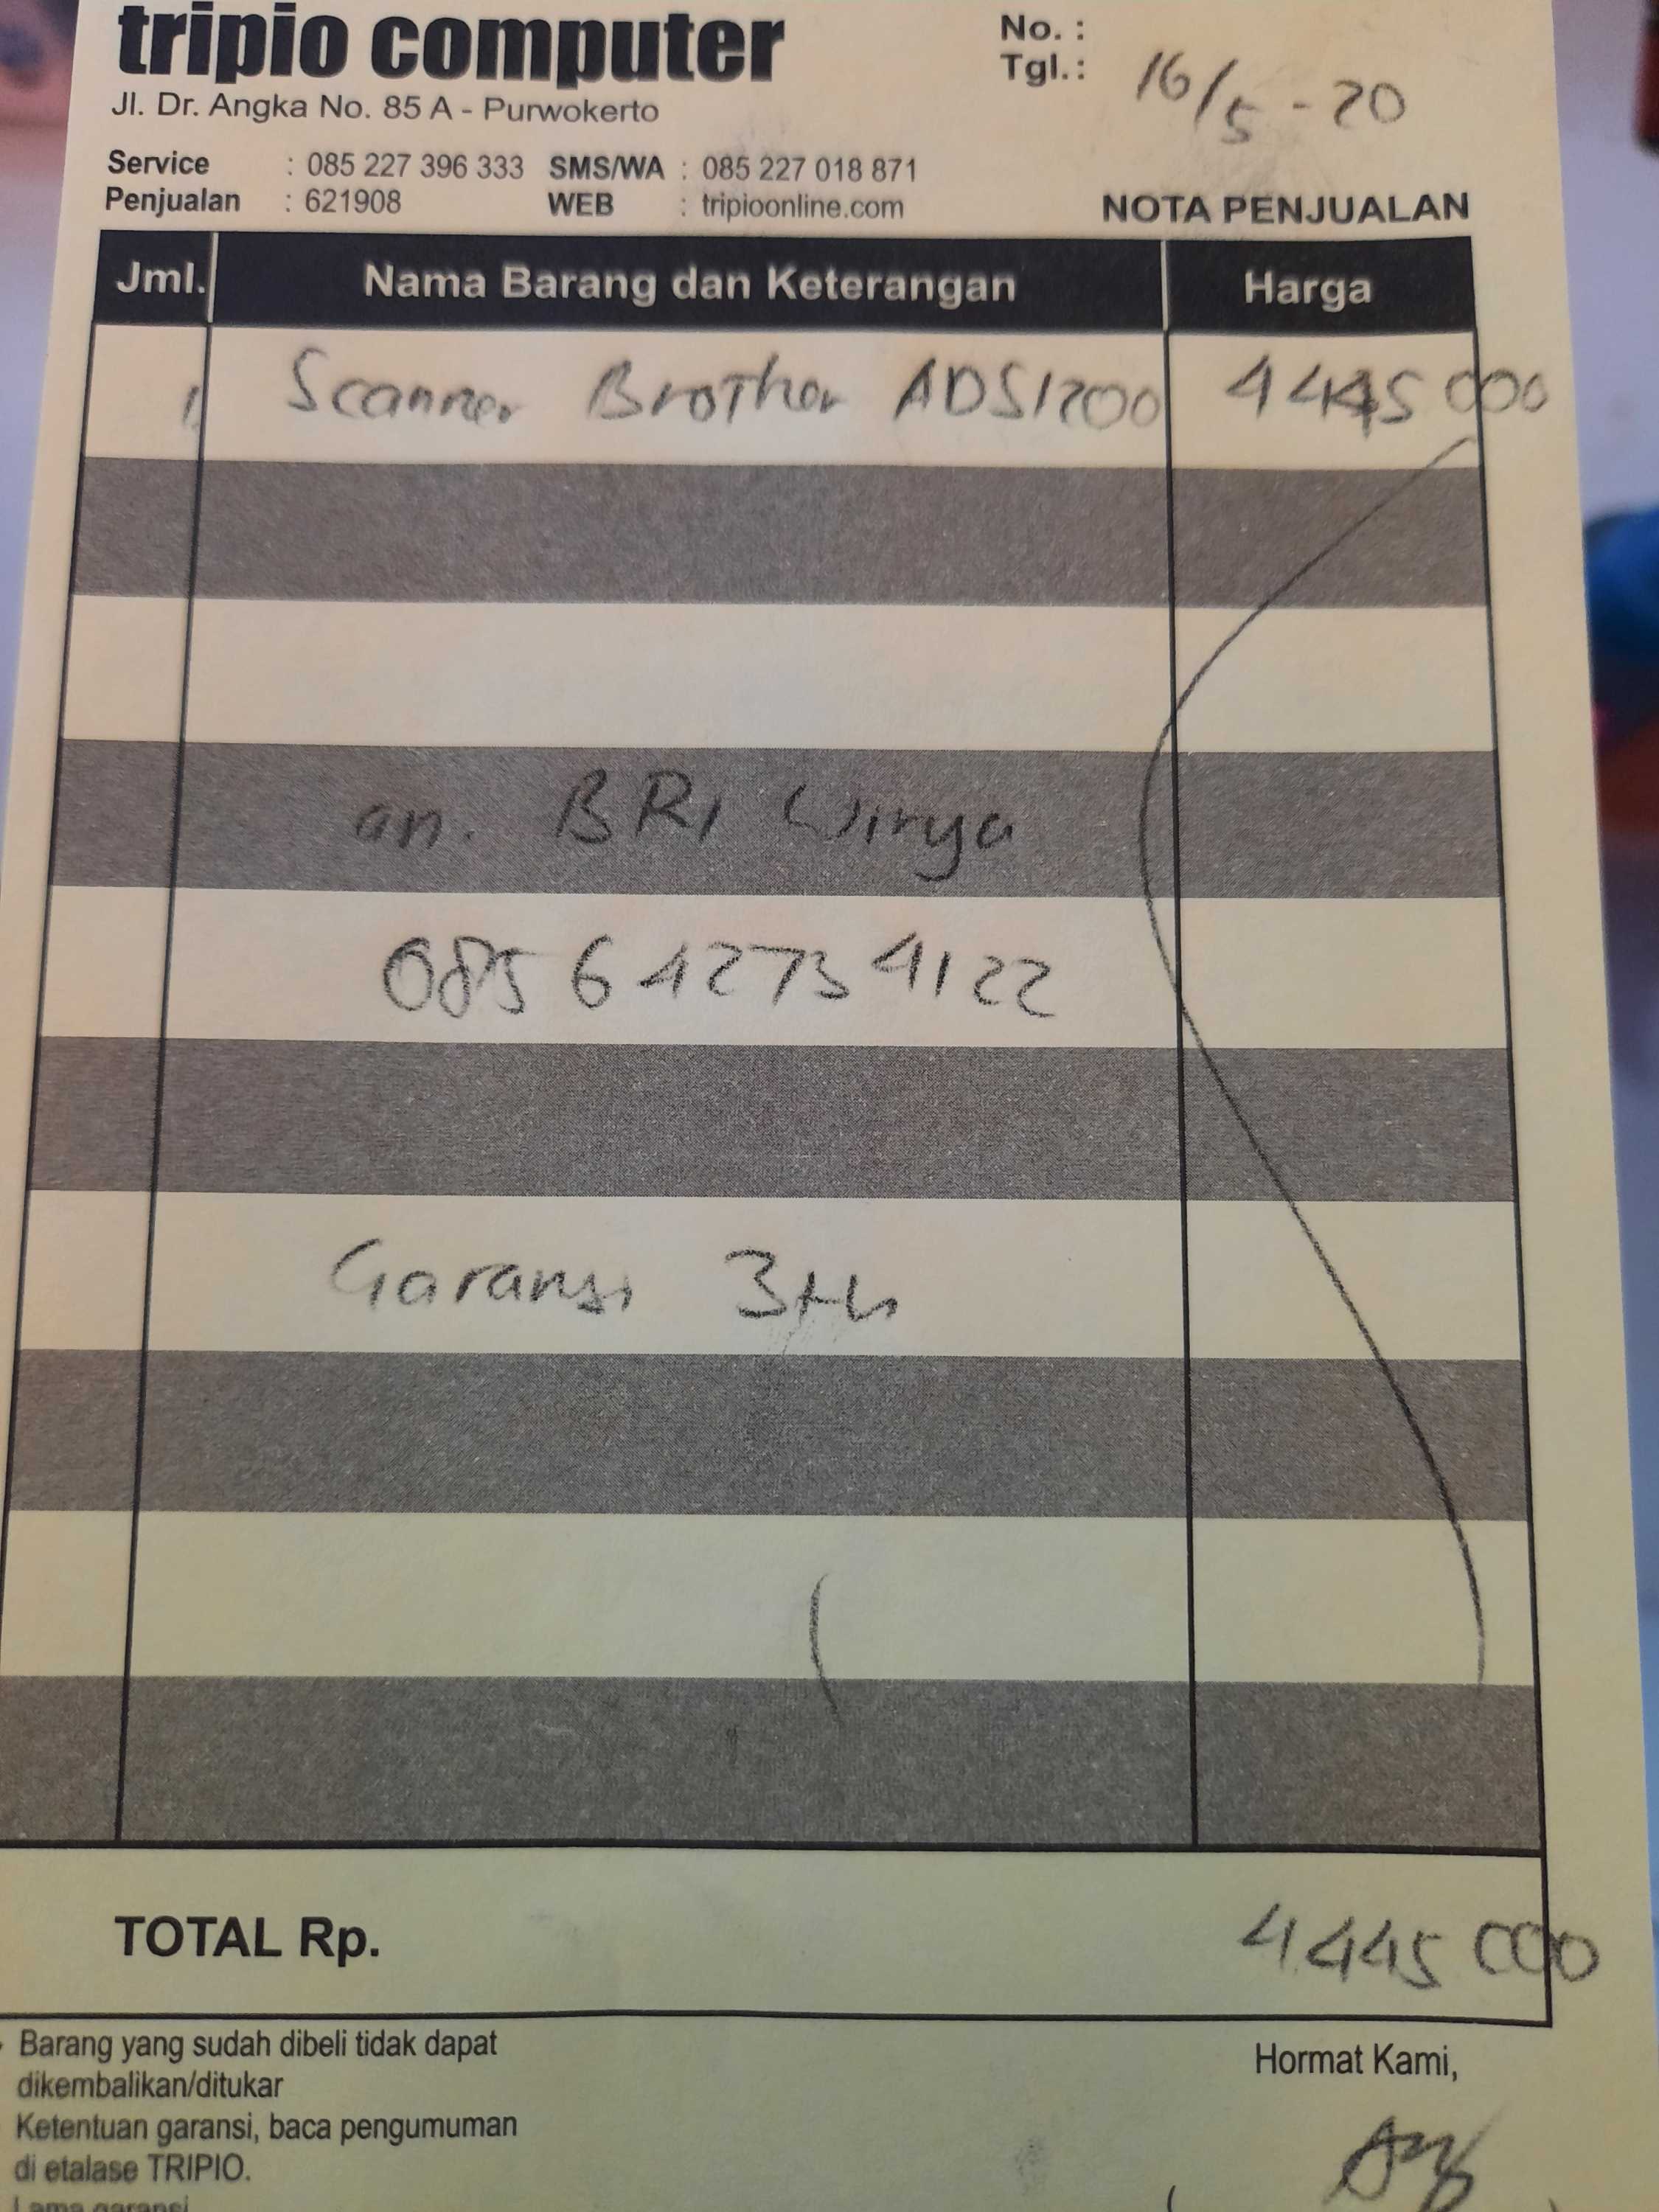 tripio computer
No. :
Tgl. : 16/5 - 20
Jl. Dr. Angka No. 85 A - Purwokerto
Service : 085 227 396 333 SMS/WA : 085 227 018 871
Penjualan : 621908 WEB : tripioonline.com
NOTA PENJUALAN
Jml. Nama Barang dan Keterangan Harga
1 Scanner Brother ADS1200 4445 000
an. BRI Wirya
085 642734122
Garansi 3th
TOTAL Rp. 4.445 000
Barang yang sudah dibeli tidak dapat
dikembalikan/ditukar
Hormat Kami,
Ketentuan garansi, baca pengumuman
di etalase TRIPIO.
Lama garansi